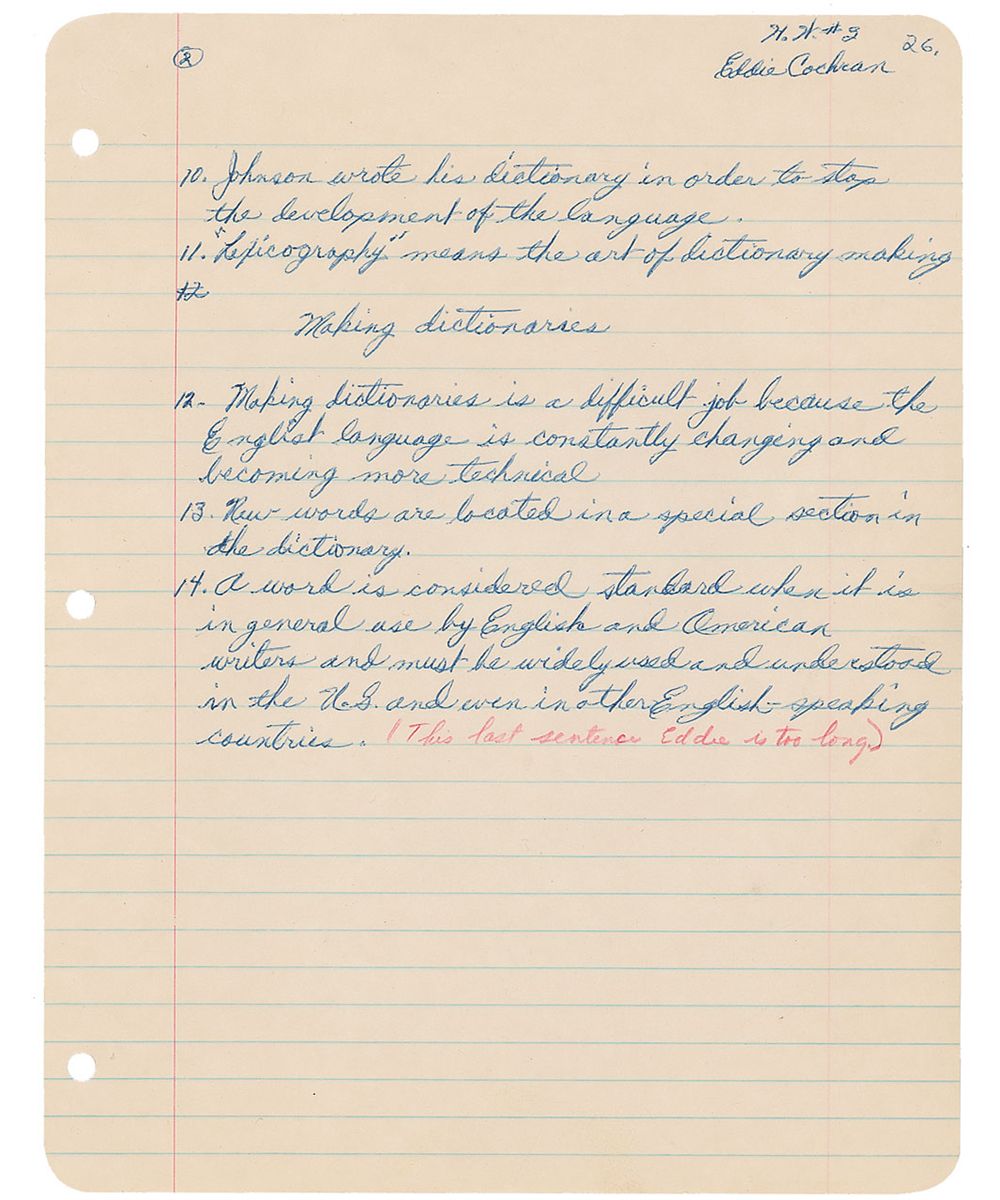 H. W. # 2 26.
② Eddie Cochran
10. Johnson wrote his dictionary in order to stop
the development of the language.
11. "Lexicography" means the art of dictionary making
12
Making dictionaries
12. Making dictionaries is a difficult job because the
English language is constantly changing and
becoming more technical
13. New words are located in a special section in
the dictionary.
14. A word is considered standard when it is
in general use by English and American
writers and must be widely used and understood
in the U.S. and even in other English-speaking
countries. (This last sentence Eddie is too long.)